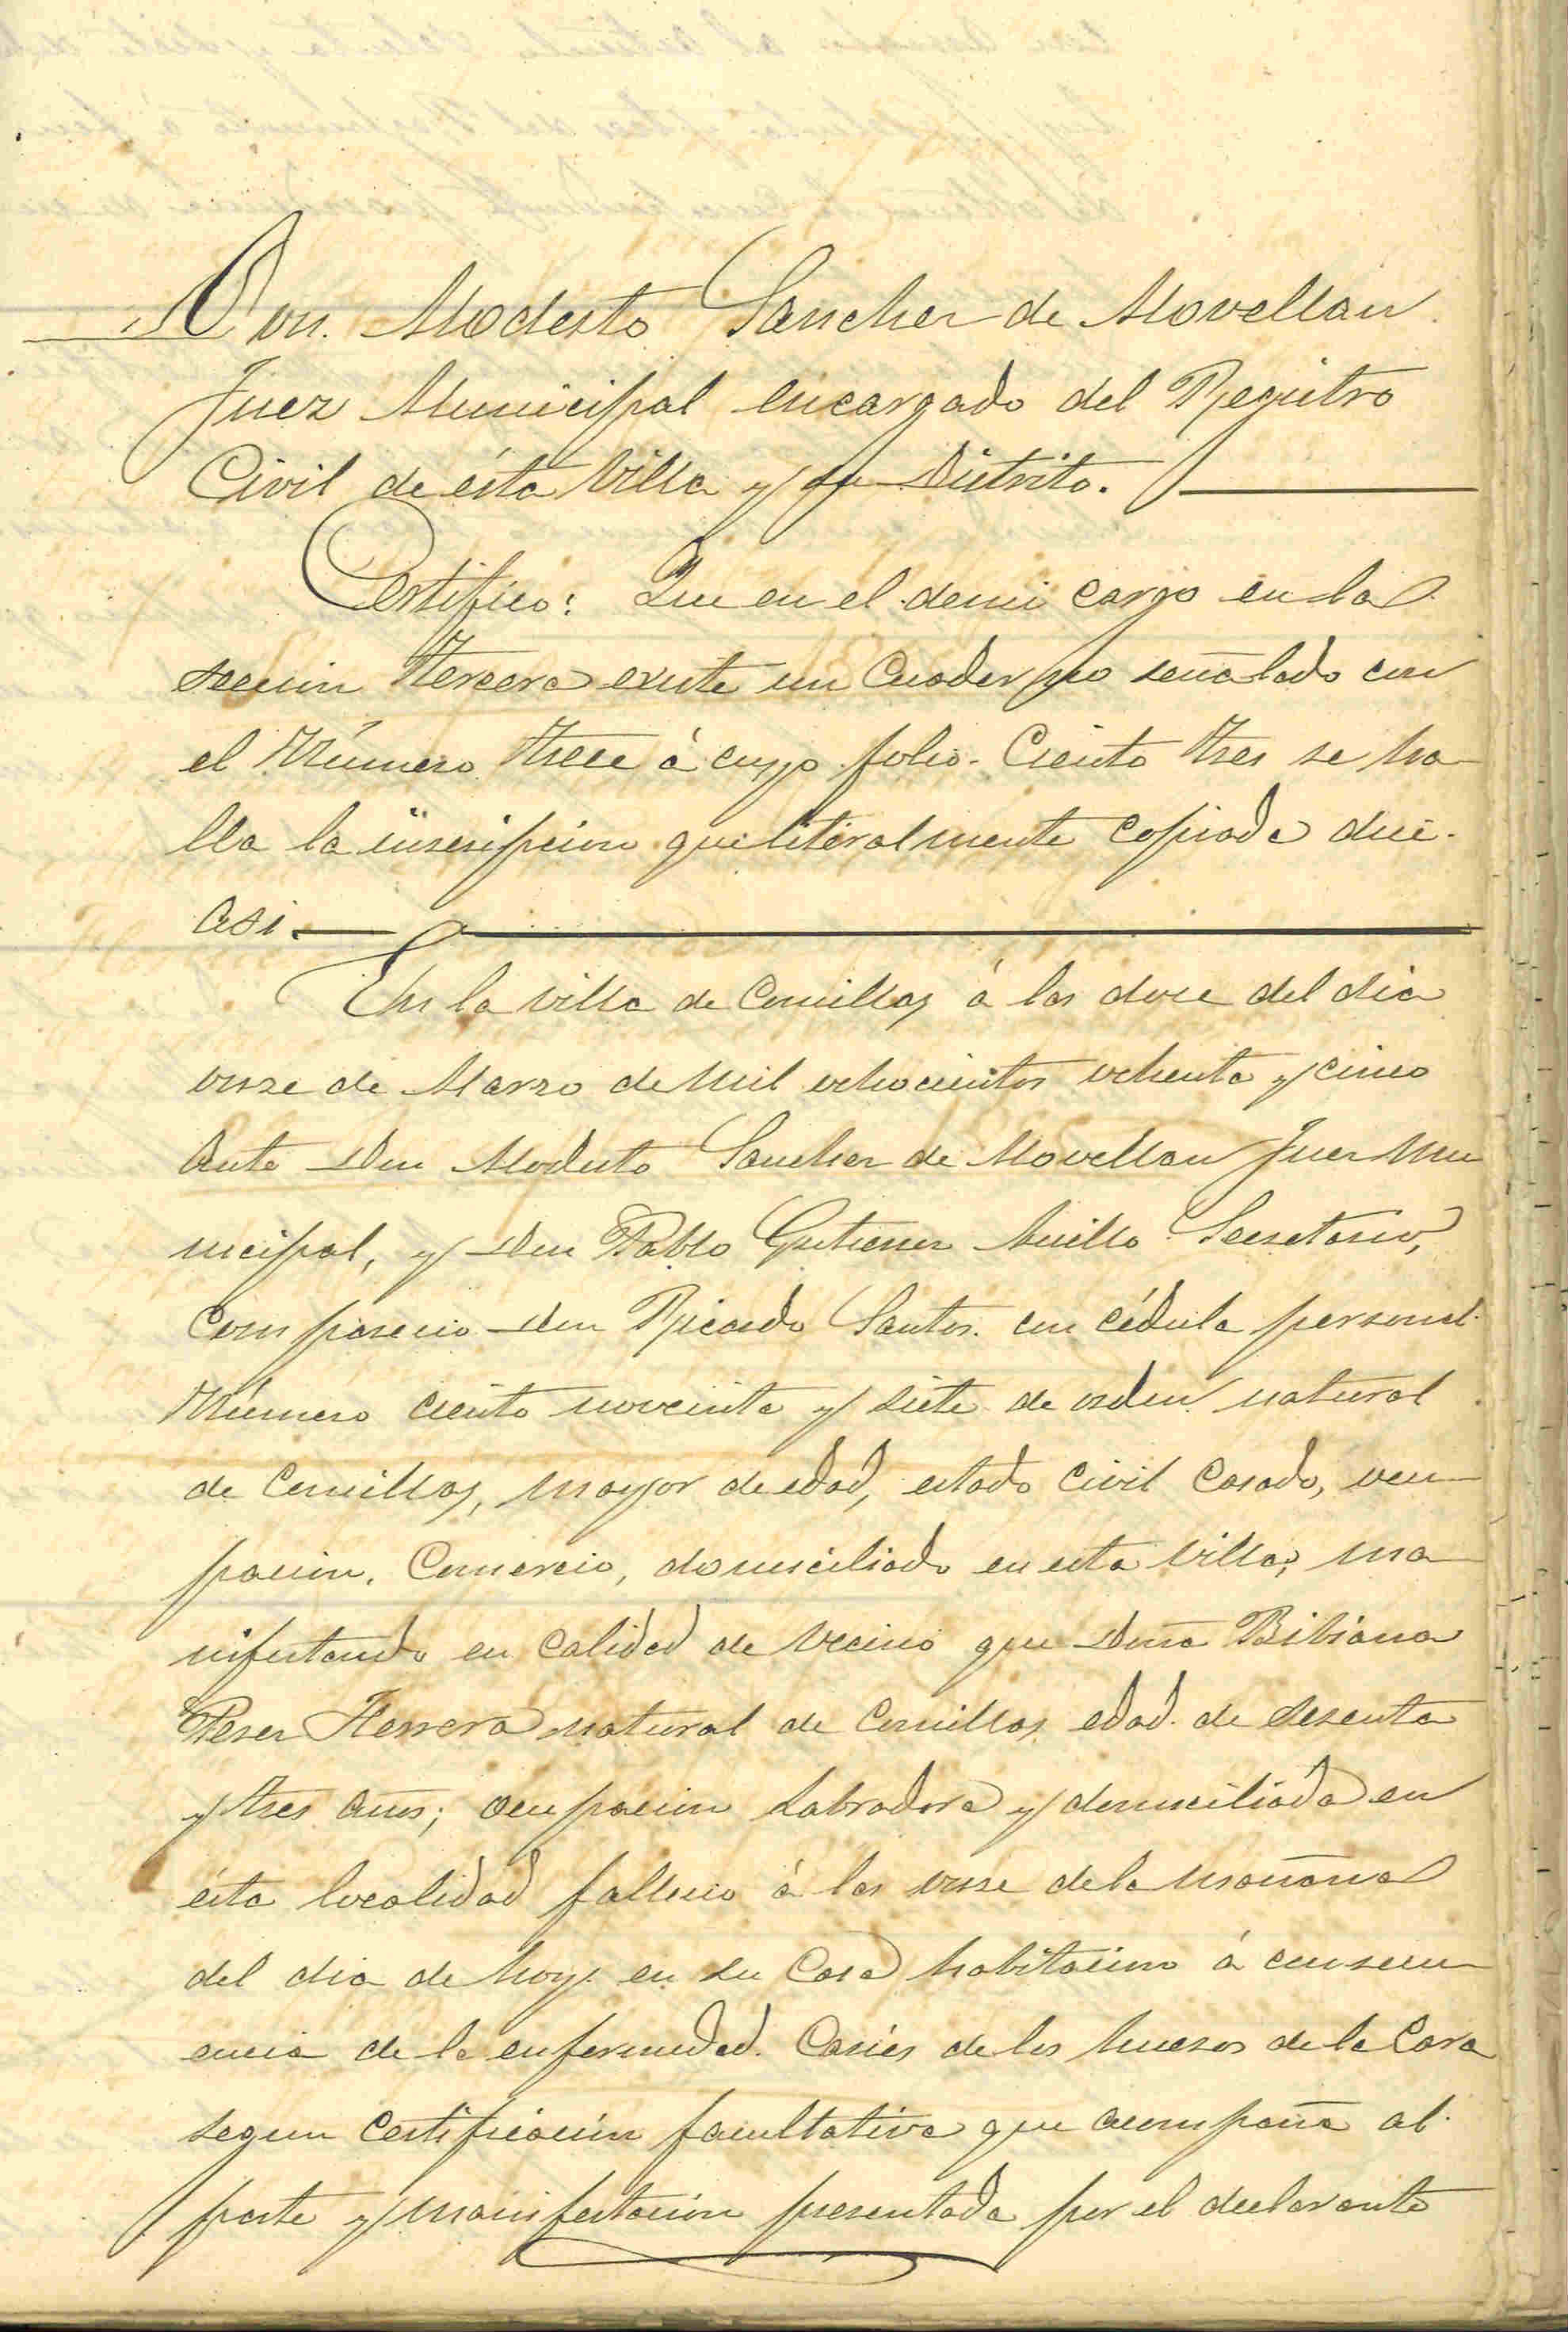 Don Modesto Sanchez de Movellan
Juez Municipal encargado del Registro
Civil de ésta Villa y su Distrito.
Certifico: Que en el de mi cargo en la
seccion tercera existe un Cuaderno señalado con
el Número trece á cuyo folio Ciento tres se ha-
lla la inscripcion que literalmente copiada dice
asi
En la villa de Comillas á las doce del dia
onze de Marzo de Mil ochocientos ochenta y cinco
Ante Don Modesto Sanchez de Movellan Juez Mu
nicipal, y Don Pablo Gutierrez Secretario,
Comparecio Don Ricardo Santos con cédula personal
Número ciento noventa y siete de orden natural
de Comillas, mayor de edad, estado Civil Casado, ocu-
pacion, Comercio, domiciliado en esta Villa, ma-
nifestando en Calidad de Vecino que Doña Bibiana
Perez Herrera natural de Comillas edad de sesenta
y tres años; ocupacion Labradora y domiciliada en
ésta localidad fallecio á las onze de la mañana
del dia de hoy en su Casa habitacion á consecu-
encia de la enfermedad Caries de los huesos de la Cara
segun Certificacion facultativa que acompaña al
parte y manifestacion presentada por el declarante